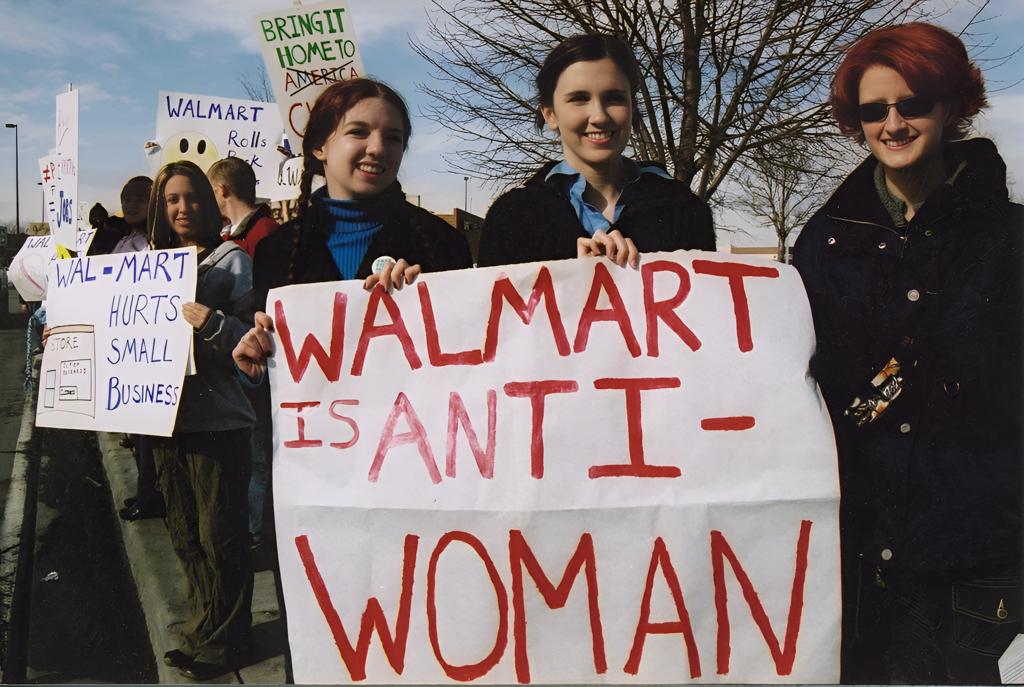 BRING IT
HOME TO
AMERICA
WALMART
Rolls
Jobs
WAL-MART
HURTS
SMALL
BUSINESS
STORE
WALMART
IS ANTI-
WOMAN